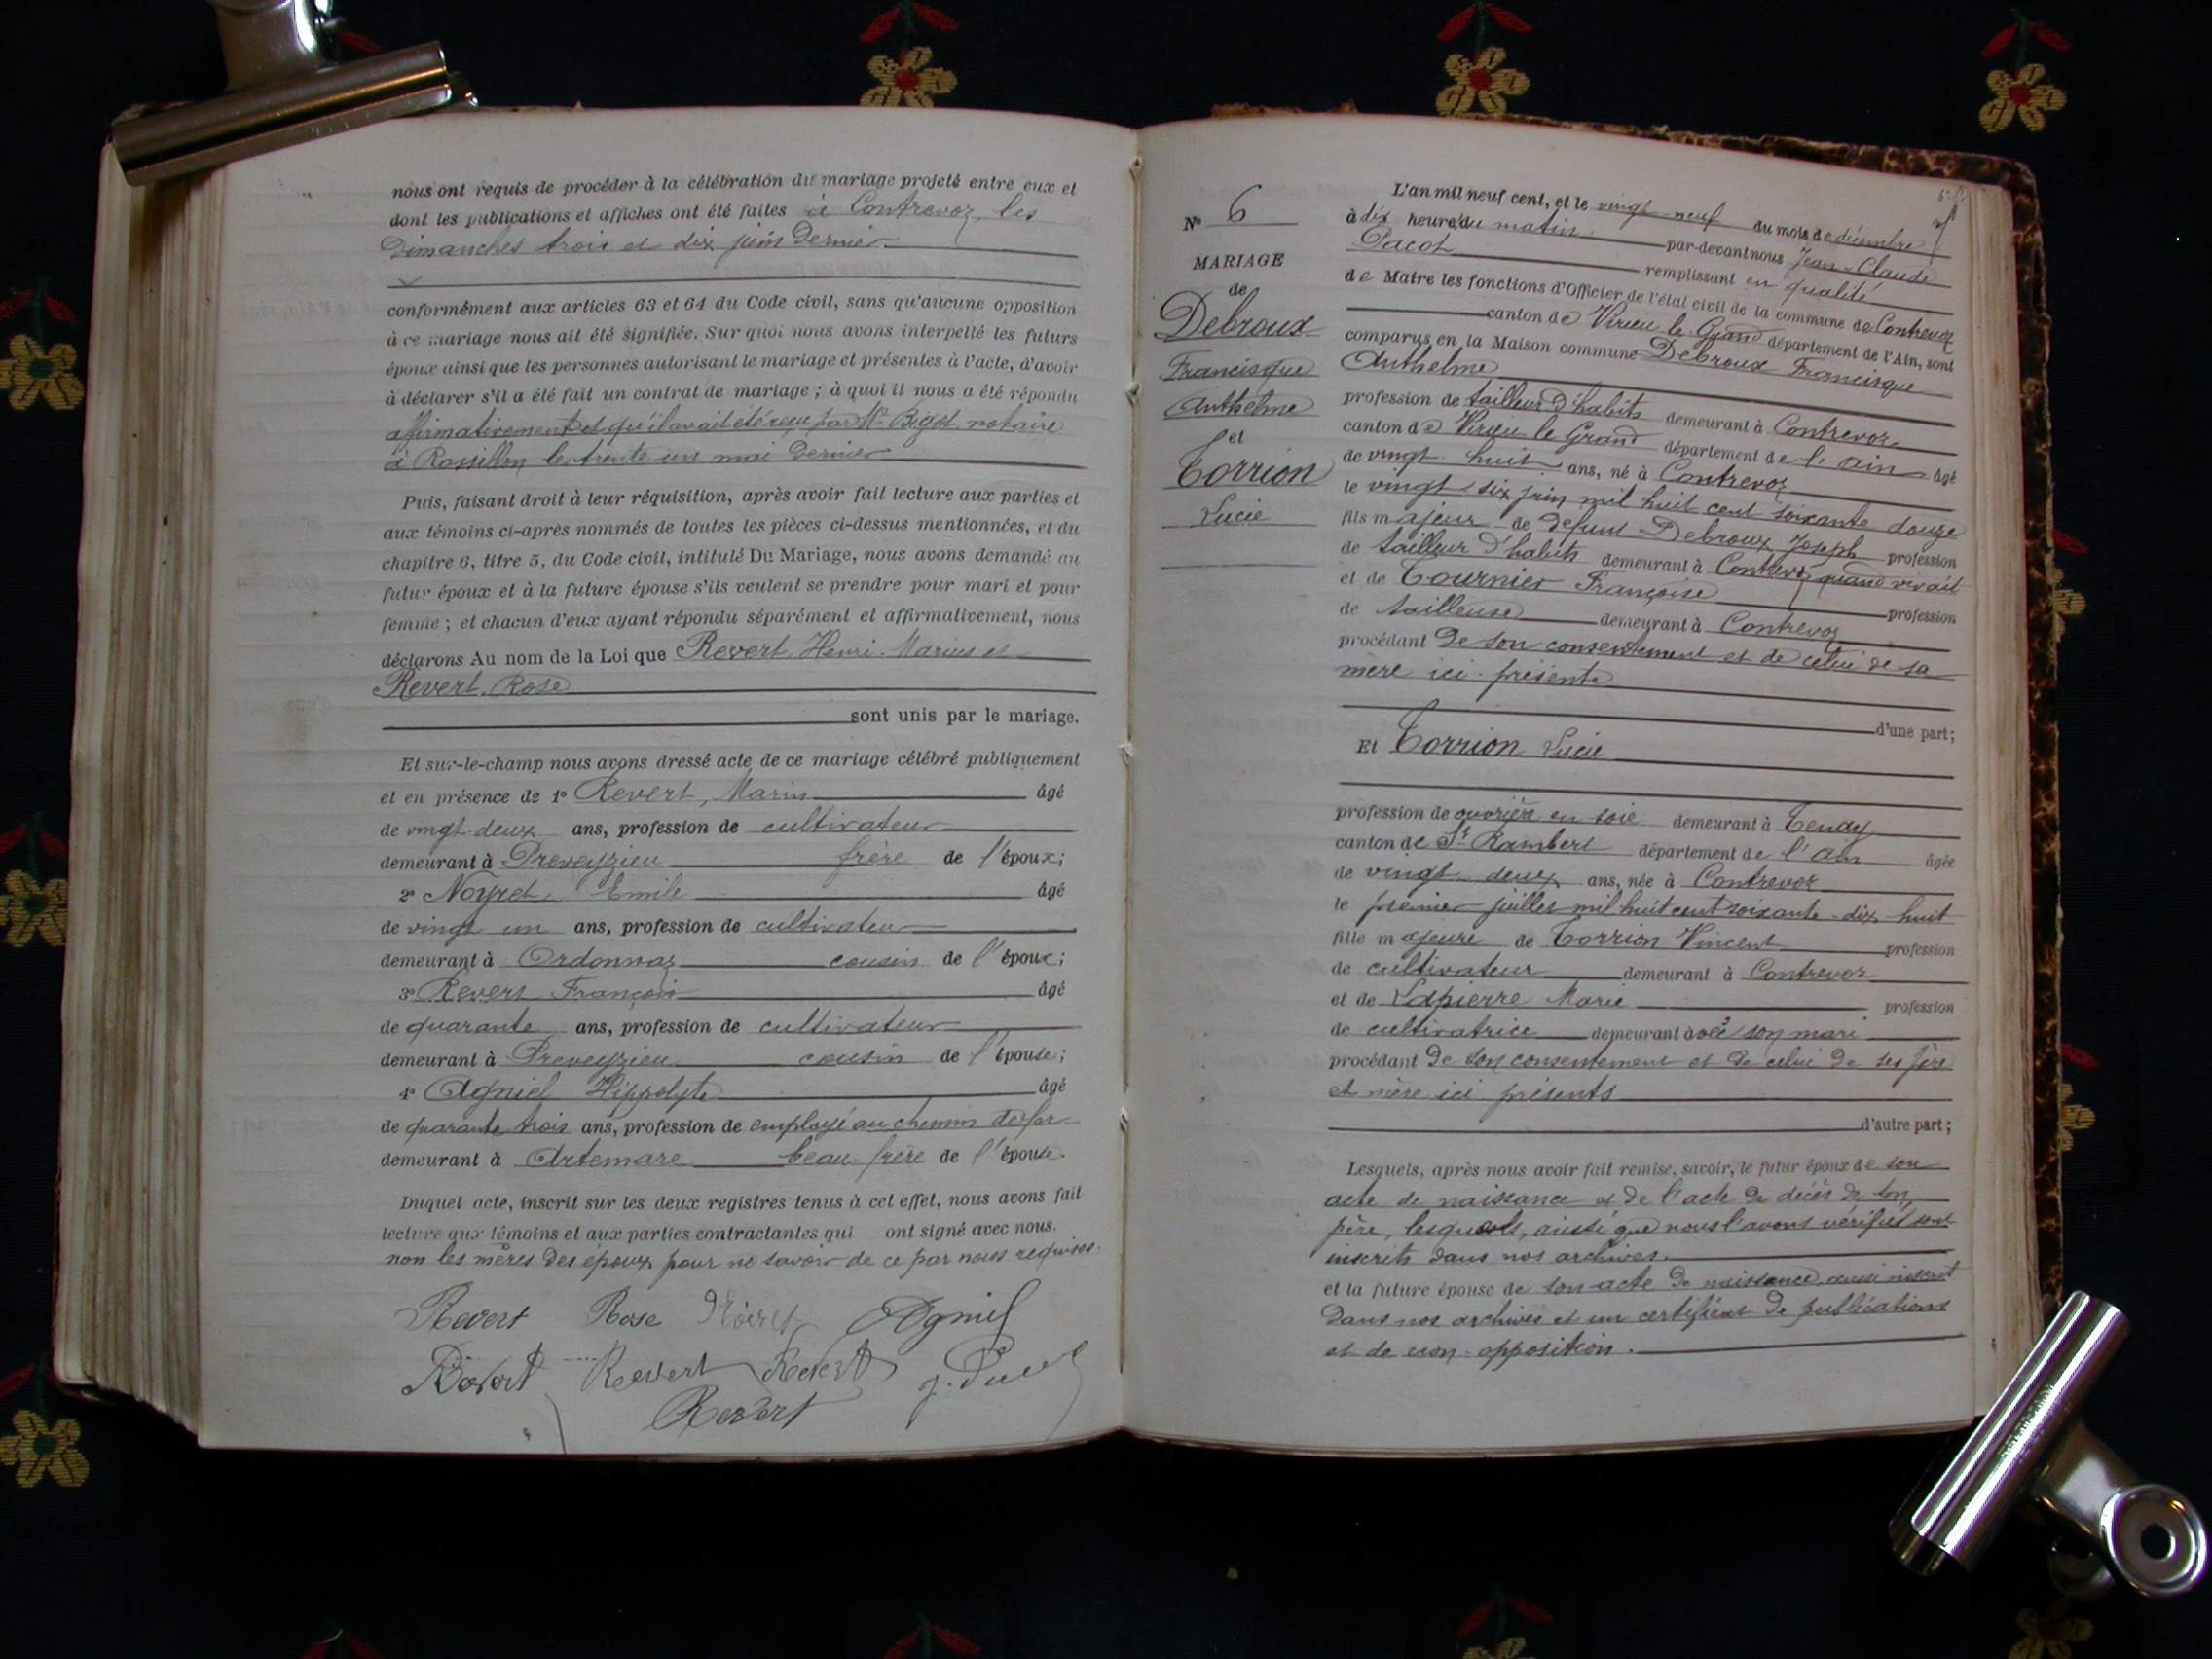 nous ont requis de procéder à la célébration du mariage projeté entre eux et
dont les publications et affiches ont été faites à Contrevoz, les
Dimanches trois et dix juin Dernier
conformément aux articles 63 et 64 du Code civil, sans qu'aucune opposition
à ce mariage nous ait été signifiée. Sur quoi nous avons interpellé les futurs
époux ainsi que les personnes autorisant le mariage et présentes à l'acte, d'avoir
à déclarer s'il a été fait un contrat de mariage ; à quoi il nous a été répondu
affirmativement et qu'il avait été reçu par Me Bigot, notaire
à Rossillon le trente un mai Dernier
Puis, faisant droit à leur réquisition, après avoir fait lecture aux parties et
aux témoins ci-après nommés de toutes les pièces ci-dessus mentionnées, et du
chapitre 6, titre 5, du Code civil, intitulé Du Mariage, nous avons demandé au
futur époux et à la future épouse s'ils veulent se prendre pour mari et pour
femme ; et chacun d'eux ayant répondu séparément et affirmativement, nous
déclarons Au nom de la Loi que Revert Henri Marius et
Revert, Rose
sont unis par le mariage.
Et sur-le-champ nous avons dressé acte de ce mariage célébré publiquement
et en présence de 1° Revert, Marin âgé
de vingt-deux ans, profession de cultivateur
demeurant à Preveyzieu frère de l'époux;
2° Noyret Emile âgé
de vingt un ans, profession de cultivateur
demeurant à Ordonnaz cousin de l'époux;
3° Revert François âgé
de quarante ans, profession de cultivateur
demeurant à Preveyzieu cousin de l'épouse;
4° Agniel Hippolyte âgé
de quarante trois ans, profession de employé au chemin de fer
demeurant à Artemare beau-frère de l'épouse.
Duquel acte, inscrit sur les deux registres tenus à cet effet, nous avons fait
lecture aux témoins et aux parties contractantes qui ont signé avec nous.
non les mères des époux pour ne savoir de ce par nous requises.
Revert Rose Agniel
Revert Revert
Revert
N° 6
MARIAGE
de
Debroux
Francisque
Anthelme
et
Torrion
Lucie
L'an mil neuf cent, et le vingt-neuf du mois de décembre
à dix heures du matin par-devant nous Jean-Claude
Pacot remplissant en qualité
de Maire les fonctions d'Officier de l'état civil de la commune de Contrevoz
canton de Virieu le Grand département de l'Ain, sont
comparus en la Maison commune Debroux Francisque
Anthelme
profession de tailleur d'habits demeurant à Contrevoz
canton de Virieu le Grand département de l'Ain âgé
de vingt-huit ans, né à Contrevoz
le vingt-six juin mil huit cent soixante douze
fils majeur de défunt Debroux Joseph profession
de tailleur d'habits demeurant à Contrevoz quand vivait
et de Tournier Françoise profession
de tailleuse demeurant à Contrevoz
procédant de son consentement et de celui de sa
mère ici présente
d'une part;
Et Torrion Lucie
profession de ouvrière en soie demeurant à Tenay
canton de St Rambert département de l'Ain âgée
de vingt deux ans, née à Contrevoz
le premier juillet mil huit cent soixante-dix-huit
fille majeure de Torrion Vincent profession
de cultivateur demeurant à Contrevoz
et de Lapierre Marie profession
de cultivatrice demeurant avec son mari
procédant de son consentement et de celui de ses père
et mère ici présents
d'autre part;
Lesquels, après nous avoir fait remise, savoir, le futur époux de son
acte de naissance et de l'acte de décès de son
père, lesquels, ainsi que nous l'avons vérifié sont
inscrits dans nos archives.
et la future épouse de son acte de naissance aussi inscrit
dans nos archives et un certificat de publications
et de non-opposition.